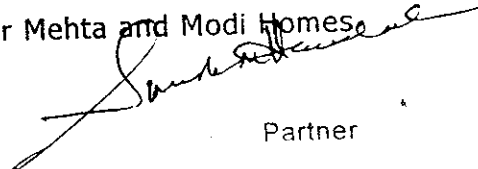 r Mehta and Modi Homes
Partner